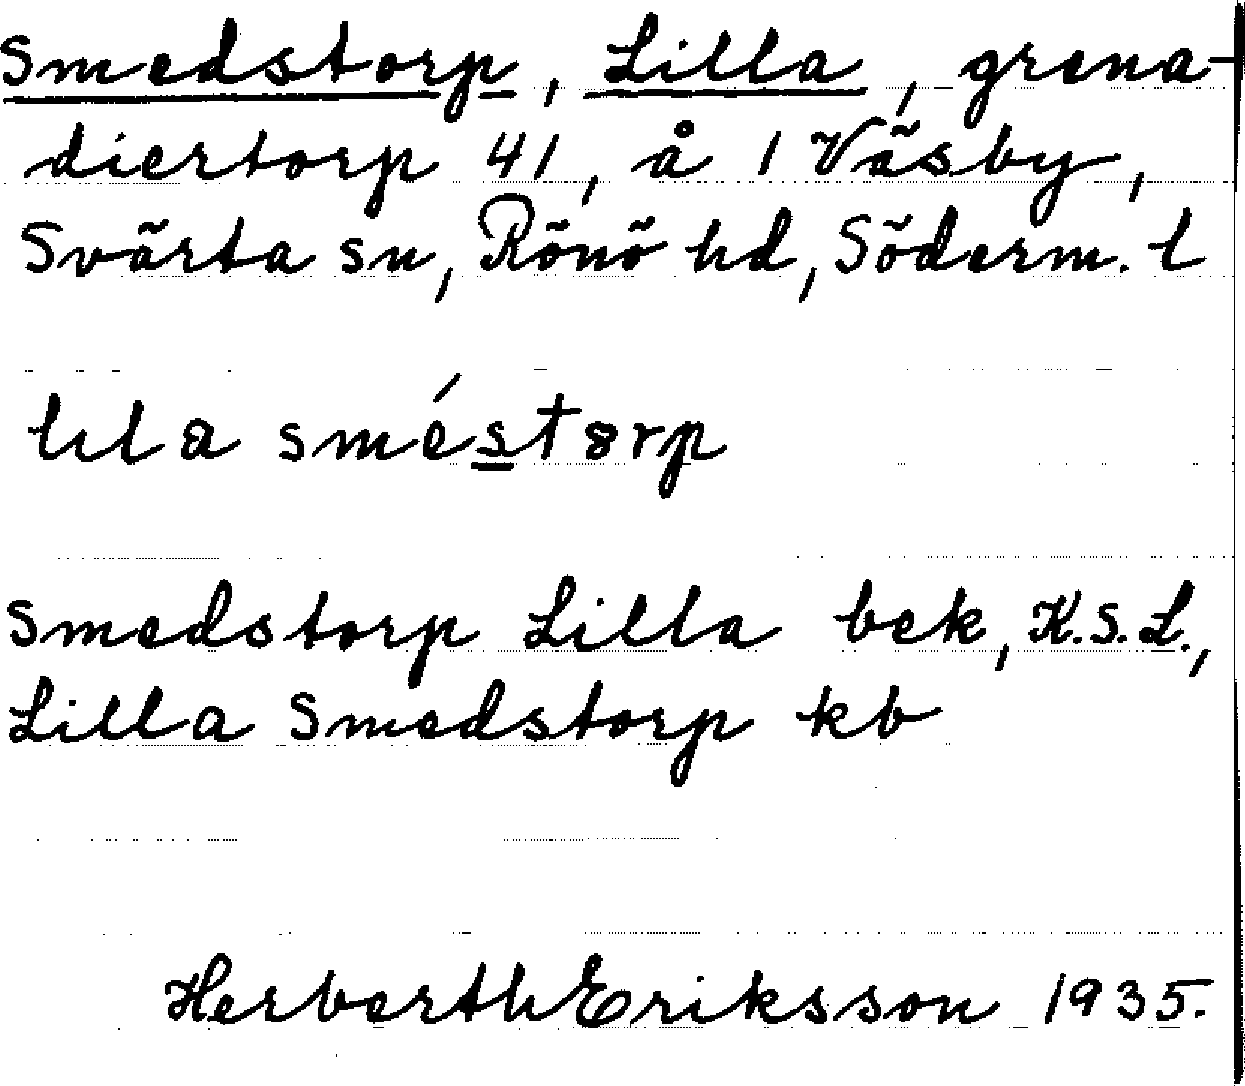 Smedstorp, Lilla, grena-
diertorp 41, å 1 Väsby,
Svärta sn, Rönö hd, Söderm. l
lila sméstorp
Smedstorp Lilla bek, K.S.L.,
Lilla Smedstorp kb
Herberth Eriksson 1935.